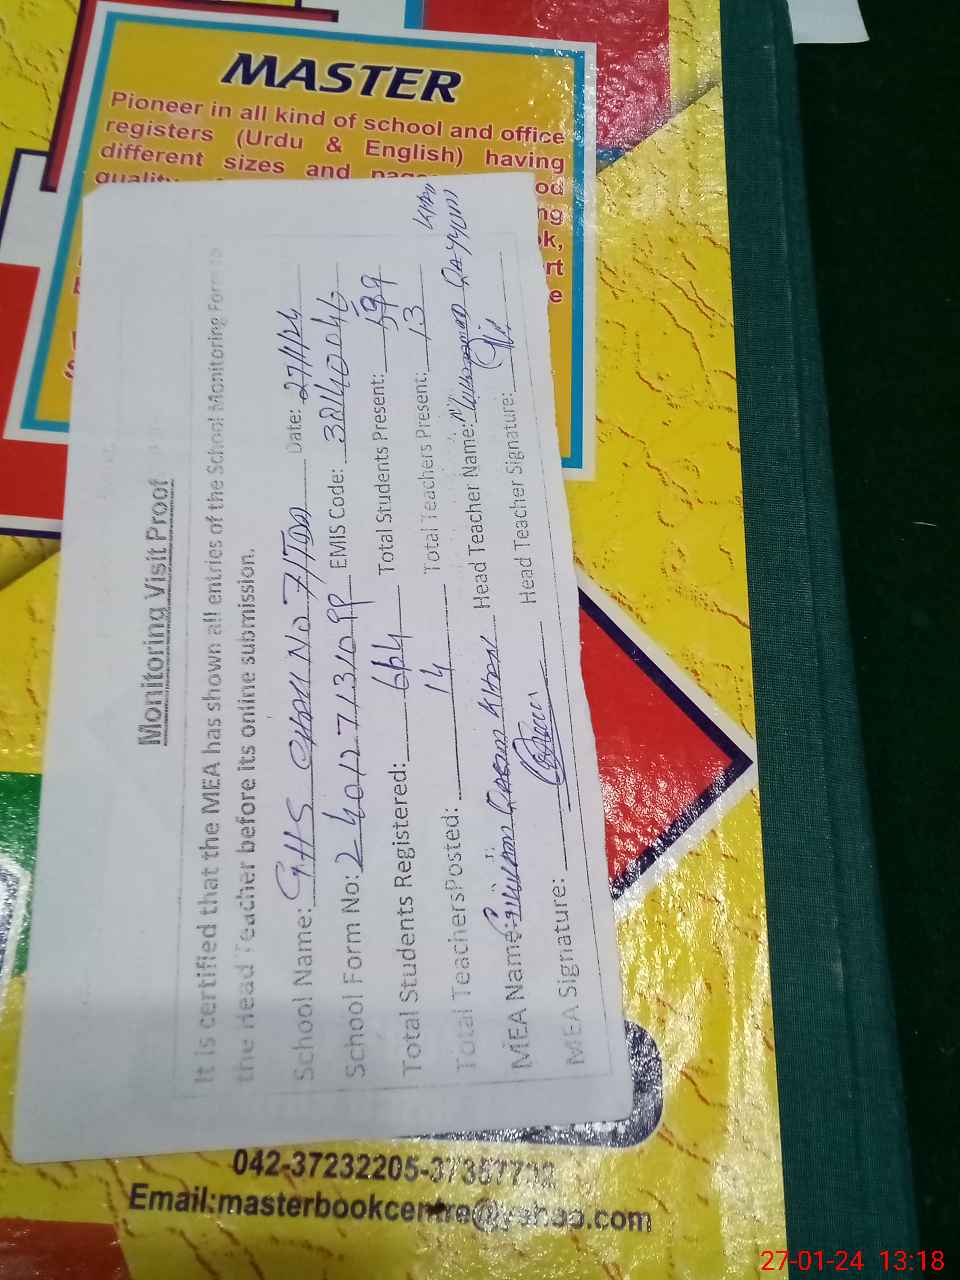 MASTER
Pioneer in all kind of school and office
registers (Urdu & English) having
different sizes and
Monitoring Visit Proof
It is certified that the MEA has shown all entries of the School Monitoring Form to
the Head Teacher before its online submission.
School Name: GHS Chak No 7/TDA Date: 27/1/24
School Form No: EMIS Code: 38140046
Total Students Registered: 664 Total Students Present: 599
Total TeachersPosted: 14 Total Teachers Present: 13
MEA Name: Khan Head Teacher Name: Muhammad Qayyum Khan
MEA Signature: Head Teacher Signature:
042-37232205-
Email:masterbookcentre@yahoo.com
27-01-24 13:18